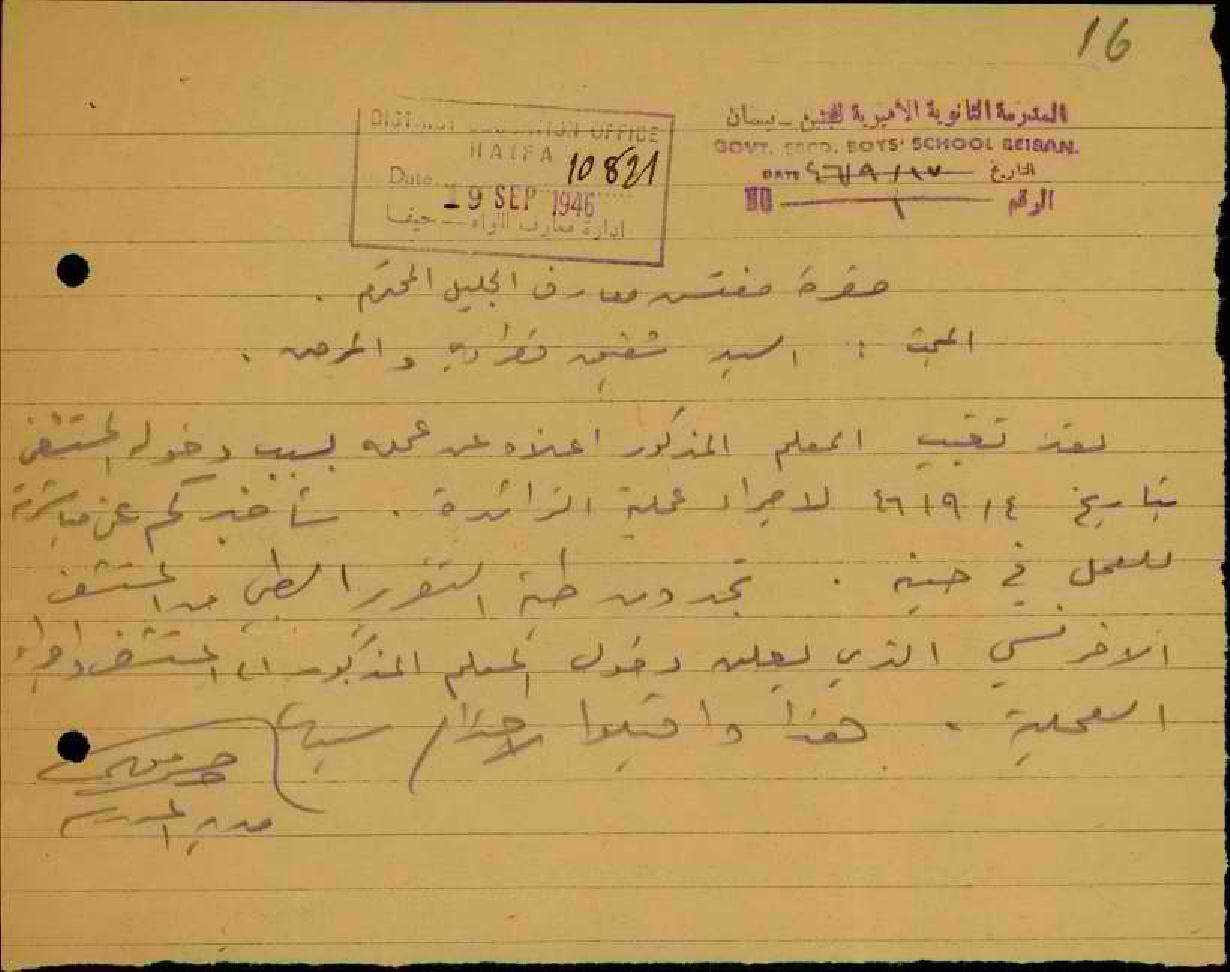 16
المدرسة الثانوية الأميرية للبنين - بيسان
GOVT. SECD. BOYS' SCHOOL BEISAN.
DATE ٤٦/٩/١٧ التاريخ
NO ١ الرقم
DISTRICT EDUCATION OFFICE
HAIFA
10821
Date 19 SEP 1946
ادارة معارف اللواء - حيفا
حضرة مفتش معارف الجليل المحترم .
المبحث : السيد شفيق والمرض .
لقد تغيب المعلم المذكور اعلاه عن عمله بسبب دخوله المستشفى
بتاريخ ٤٦/٩/١٤ لاجراء عملية الزائدة . سأخبركم عن مباشرته
للعمل في حينه . تجدون طيه التقرير الطبي من المستشفى
الافرنسي الذي يعلن دخول المعلم المذكور الى المستشفى واجراء
العملية . هذا واقبلوا الاحترام سيدي
مدير المدرسة